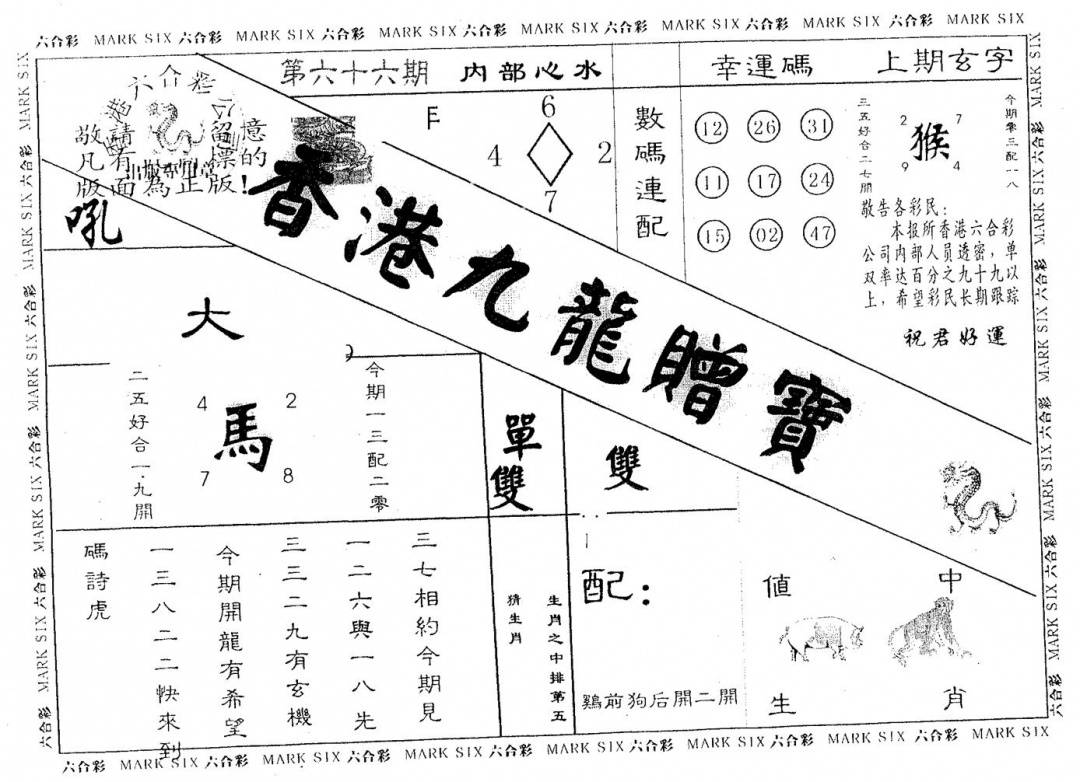 六合彩 MARK SIX 六合彩 MARK SIX 六合彩 MARK SIX 六合彩 MARK SIX 六合彩 MARK SIX 六合彩 MARK SIX 六合彩 MARK SIX
六合彩
敬請留意
凡有標的
版面為正版!
吼
第六十六期
内部心水
6
4 2
7
數碼連配
幸運碼
12 26 31
11 17 24
15 02 47
上期玄字
三五好合二七開
2 7
猴
9 4
今期零三配一八
敬告各彩民:
本报所香港六合彩
公司内部人员透密,单
双率达百分之九十九以
上,希望彩民长期跟踪
祝君好運
香港九龍贈寶
大
二五好合一.九開
4 2
馬
7 8
今期一三配二零
單雙
雙
三七相約今期見
一二六與一八先
三三二九有玄機
今期開龍有希望
一三八二二快來到
碼詩虎
生肖之中排第五
猜生肖
配:
鷄前狗后開二開
值 中
生 肖
六合彩 MARK SIX 六合彩 MARK SIX 六合彩 MARK SIX 六合彩 MARK SIX 六合彩 MARK SIX 六合彩 MARK SIX 六合彩 MARK SIX
MARK SIX 六合彩 MARK SIX 六合彩 MARK SIX 六合彩 MARK SIX 六合彩 MARK SIX 六合彩
MARK SIX 六合彩 MARK SIX 六合彩 MARK SIX 六合彩 MARK SIX 六合彩 MARK SIX 六合彩